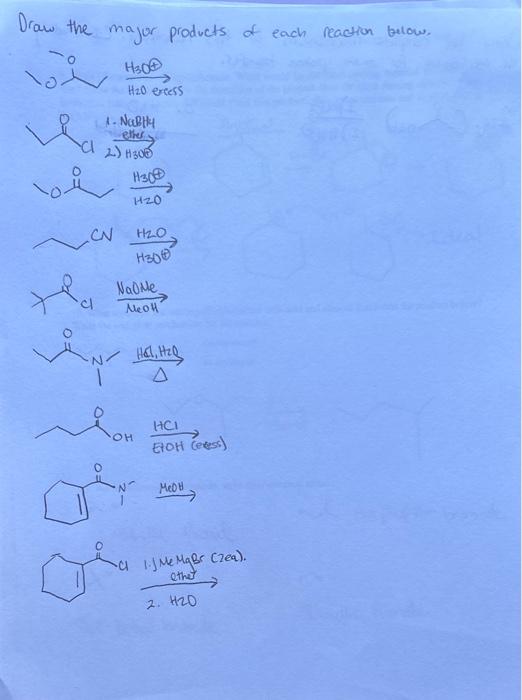 Draw the major products of each reaction below.
O
O
H3O⊕
H2O excess
O
Cl
1. NaBH4
ether
2) H3O⊕
O
O
H3O⊕
H2O
CN
H2O
H3O⊕
O
Cl
NaOMe
MeOH
O
N
HCl, H2O
Δ
O
OH
HCl
EtOH (excess)
O
N
MeOH
O
Cl
1.) MeMgBr (2eq).
ether
2. H2O